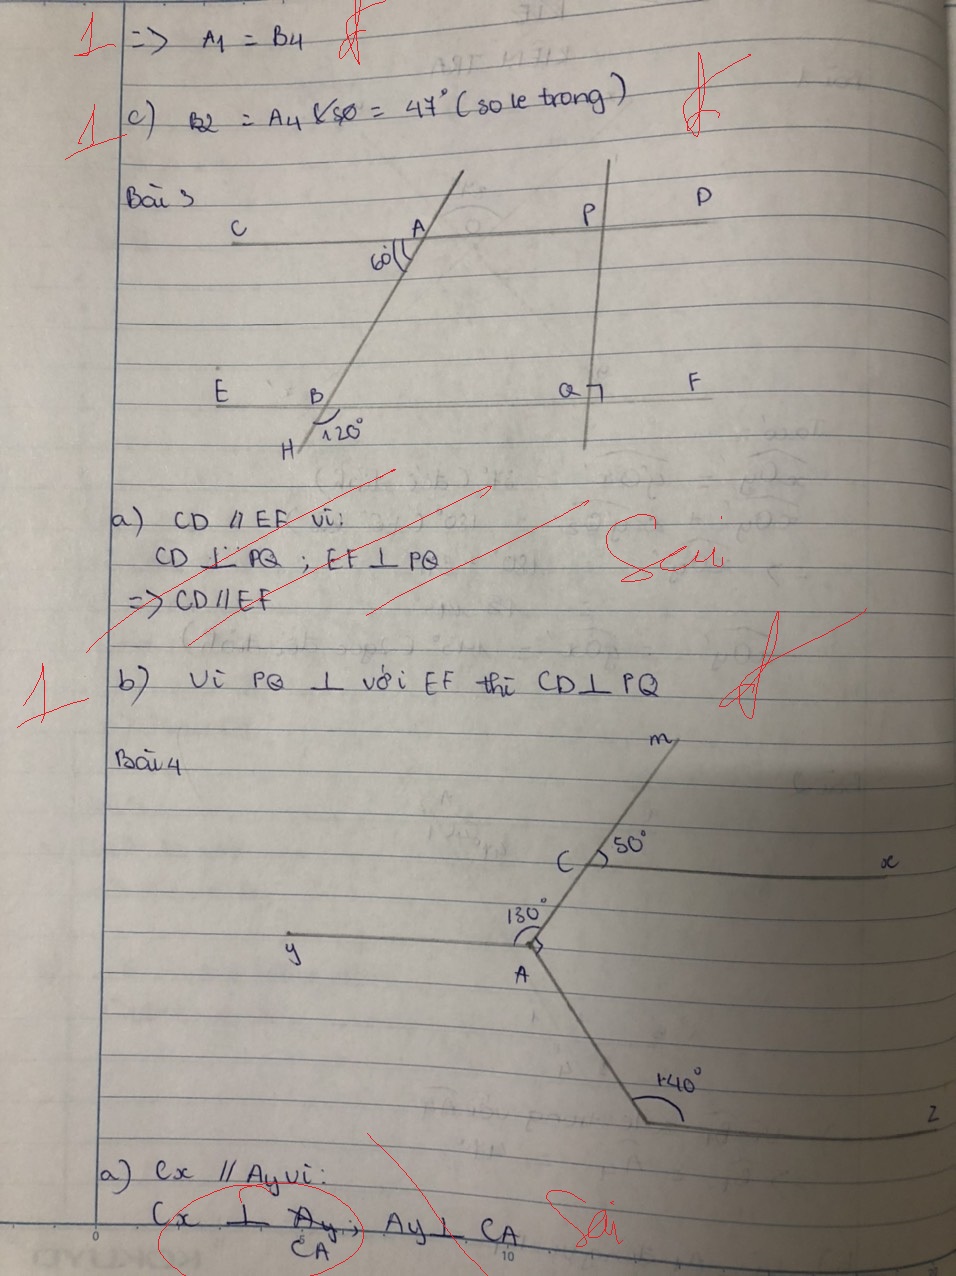 1 => A1 = B4 đ
1 c) B2 = A4 = 47° (so le trong) đ
Bài 3
C A P D
60°
E B Q F
H 120°
a) CD // EF vì:
CD ⊥ PQ ; EF ⊥ PQ Sai
=> CD // EF
1 b) Vì PQ ⊥ với EF thì CD ⊥ PQ đ
Bài 4
m
C 50° x
130°
y A
140°
z
a) Cx // Ay vì:
Cx ⊥ Ay ; Ay ⊥ CA Sai
CA
0 10